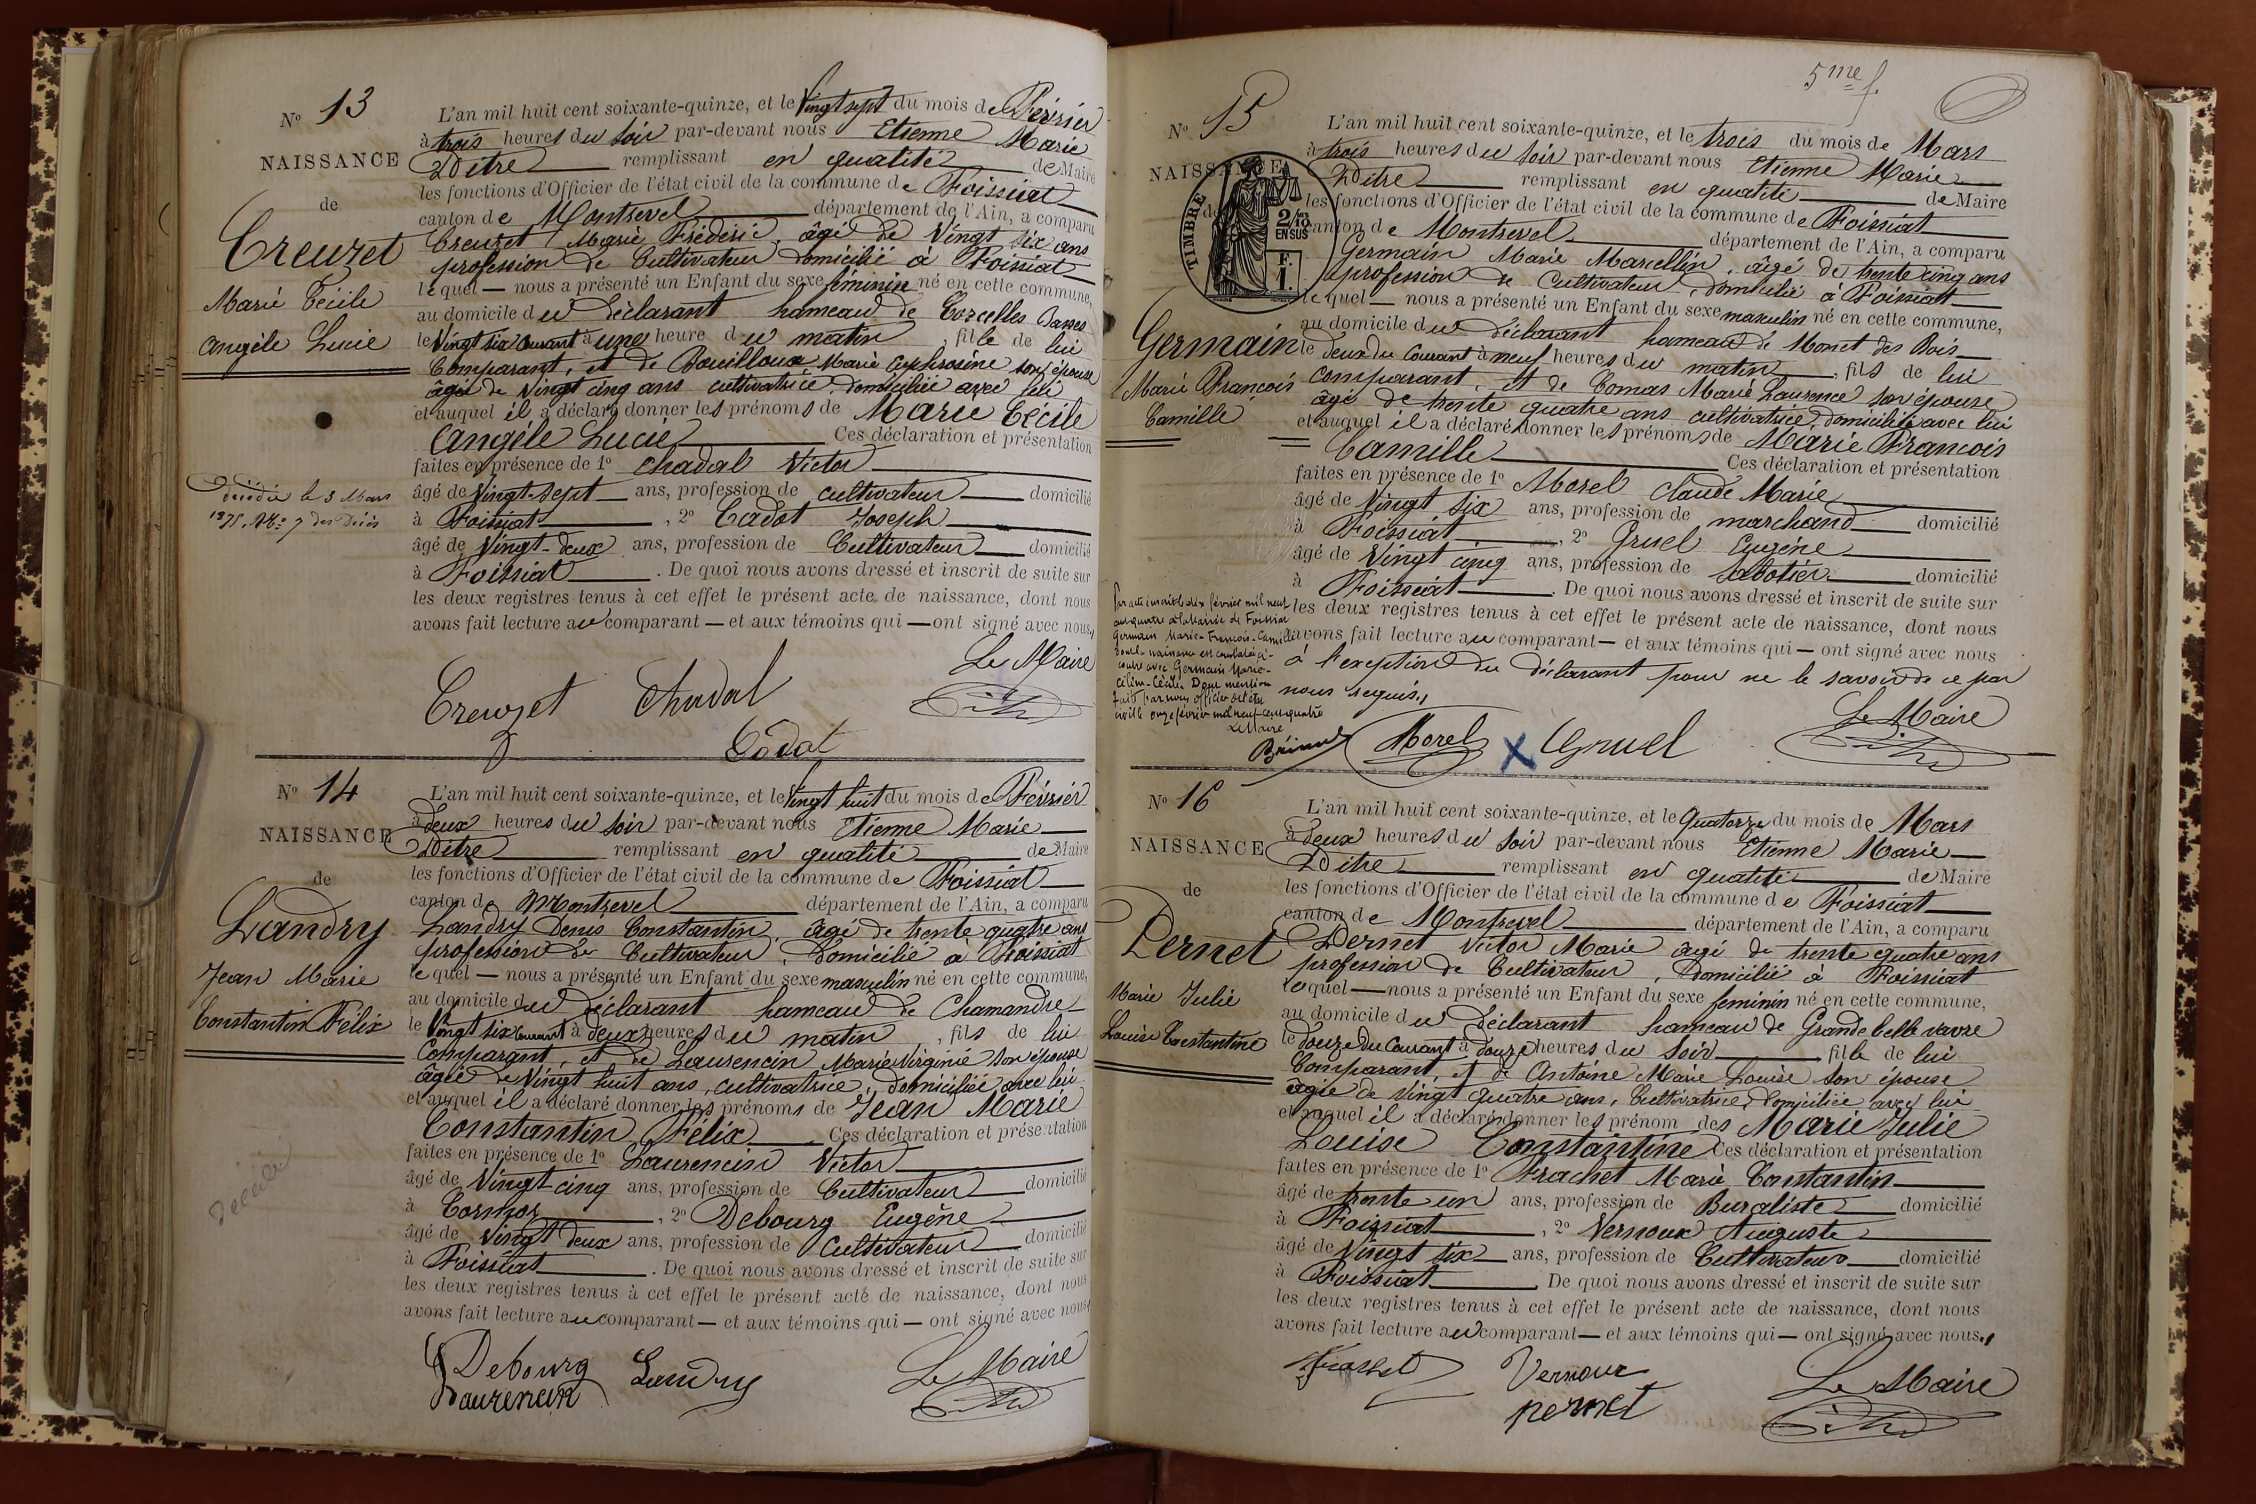 N° 13
NAISSANCE
de
Creuzet
Marie Cécile
Angèle Lucie
décédée le 3 Mars
1875. N° 7 des Décès
L'an mil huit cent soixante-quinze, et le Vingt sept du mois de Février
à trois heures du soir par-devant nous Etienne Marie
Ditre remplissant en qualité de Maire
les fonctions d'Officier de l'état civil de la commune de Foissiat
canton de Montrevel département de l'Ain, a comparu
Creuzet Marie Frédéric, âgé de Vingt six ans
profession de Cultivateur domicilié à Foissiat
lequel — nous a présenté un Enfant du sexe féminin né en cette commune,
au domicile du déclarant hameau de Corcelles Basses
le Vingt six Courant à une heure du matin, fille de lui
Comparant, et de Bouilloux Marie Euphrosine son épouse
âgée de Vingt cinq ans cultivatrice domiciliée avec lui
et auquel il a déclaré donner les prénoms de Marie Cécile
Angéle Lucie Ces déclaration et présentation
faites en présence de 1° Chadal Victor
âgé de Vingt-sept ans, profession de cultivateur domicilié
à Foissiat, 2° Cadot Joseph
âgé de Vingt-deux ans, profession de Cultivateur domicilié
à Foissiat. De quoi nous avons dressé et inscrit de suite sur
les deux registres tenus à cet effet le présent acte de naissance, dont nous
avons fait lecture au comparant — et aux témoins qui — ont signé avec nous,
Le Maire
Creuzet Chadal
Cadot
N° 14
NAISSANCE
de
Landry
Jean Marie
Constantin Félix
Décédé
L'an mil huit cent soixante-quinze, et le Vingt huit du mois de Février
à deux heures du soir par-devant nous Etienne Marie
Ditre remplissant en qualité de Maire
les fonctions d'Officier de l'état civil de la commune de Foissiat
canton de Montrevel département de l'Ain, a comparu
Landry Denis Constantin, âgé de trente quatre ans
profession de Cultivateur, Domicilié à Foissiat
lequel — nous a présenté un Enfant du sexe masculin né en cette commune,
au domicile du déclarant hameau de Chamandre
le Vingt six Courant à deux heures du matin, fils de lui
Comparant, et de Laurencin Marie Virginie son épouse
âgée de Vingt huit ans, cultivatrice, domiciliée avec lui
et auquel il a déclaré donner les prénoms de Jean Marie
Constantin Félix. Ces déclaration et présentation
faites en présence de 1° Laurencin Victor
âgé de Vingt cinq ans, profession de Cultivateur domicilié
à Cormoz, 2° Debourg Eugène
âgé de Vingt deux ans, profession de Cultivateur domicilié
à Foissiat. De quoi nous avons dressé et inscrit de suite sur
les deux registres tenus à cet effet le présent acte de naissance, dont nous
avons fait lecture au comparant — et aux témoins qui — ont signé avec nous,
Debourg Landry Le Maire
Laurencin
5me f.
N° 15
NAISSANCE
de
TIMBRE
2/10 EN SUS
F. 1.
Germain
Marie François
Camille
Par acte inscrit le dix février mil neuf
cent quatre à la Mairie de Foissiat
Germain Marie-François-Camille
dont la naissance est constatée ci-
contre avec Germain Marie-
Célina-Cécile. Dont mention
faite par nous officier de l'état
civil le onze février mil neuf cent quatre
Le Maire
L'an mil huit cent soixante-quinze, et le trois du mois de Mars
à trois heures du soir par-devant nous Etienne Marie
Ditre remplissant en qualité de Maire
les fonctions d'Officier de l'état civil de la commune de Foissiat
canton de Montrevel département de l'Ain, a comparu
Germain Marie Marcellin, âgé de trente cinq ans
profession de Cultivateur, domicilié à Foissiat
lequel — nous a présenté un Enfant du sexe masculin né en cette commune,
au domicile du déclarant hameau de Monet des Bois
le deux du Courant à neuf heures du matin, fils de lui
comparant, et de Comas Marie Laurence son épouse
âgé de trente quatre ans cultivatrice, domiciliée avec lui
et auquel il a déclaré donner les prénoms de Marie François
Camille Ces déclaration et présentation
faites en présence de 1° Morel Claude Marie
âgé de Vingt six ans, profession de marchand domicilié
à Foissiat, 2° Gruel Eugéne
âgé de Vingt cinq ans, profession de sabotier domicilié
à Foissiat. De quoi nous avons dressé et inscrit de suite sur
les deux registres tenus à cet effet le présent acte de naissance, dont nous
avons fait lecture au comparant — et aux témoins qui — ont signé avec nous
à l'exception du déclarant pour ne le savoir de ce par
nous requis,
Le Maire
Morel X Gruel
N° 16
NAISSANCE
de
Pernet
Marie Julie
Louise Constantine
L'an mil huit cent soixante-quinze, et le Quatorze du mois de Mars
à deux heures du soir par-devant nous Etienne Marie
Ditre remplissant en qualité de Maire
les fonctions d'Officier de l'état civil de la commune de Foissiat
canton de Montrevel département de l'Ain, a comparu
Pernet Victor Marie âgé de trente quatre ans
profession de Cultivateur, Domicilié à Foissiat
lequel — nous a présenté un Enfant du sexe feminin né en cette commune,
au domicile du Déclarant hameau de Grande belle vavre
le douze du Courant à douze heures du soir, fille de lui
Comparant, et de Antoine Marie Louise son épouse
âgée de Vingt quatre ans, Cultivatrice, Domiciliée avec lui
et auquel il a déclaré donner les prénom des Marie Julie
Louise Constantine Ces déclaration et présentation
faites en présence de 1° Frachet Marie Constantin
âgé de trente un ans, profession de Buraliste domicilié
à Foissiat, 2° Vernoux Auguste
âgé de Vingt six ans, profession de Cultivateur domicilié
à Foissiat. De quoi nous avons dressé et inscrit de suite sur
les deux registres tenus à cet effet le présent acte de naissance, dont nous
avons fait lecture au comparant — et aux témoins qui — ont signé avec nous,
Frachet Vernoux Le Maire
pernet